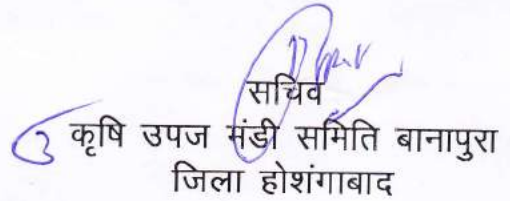 सचिव
कृषि उपज मंडी समिति बानापुरा
जिला होशंगाबाद